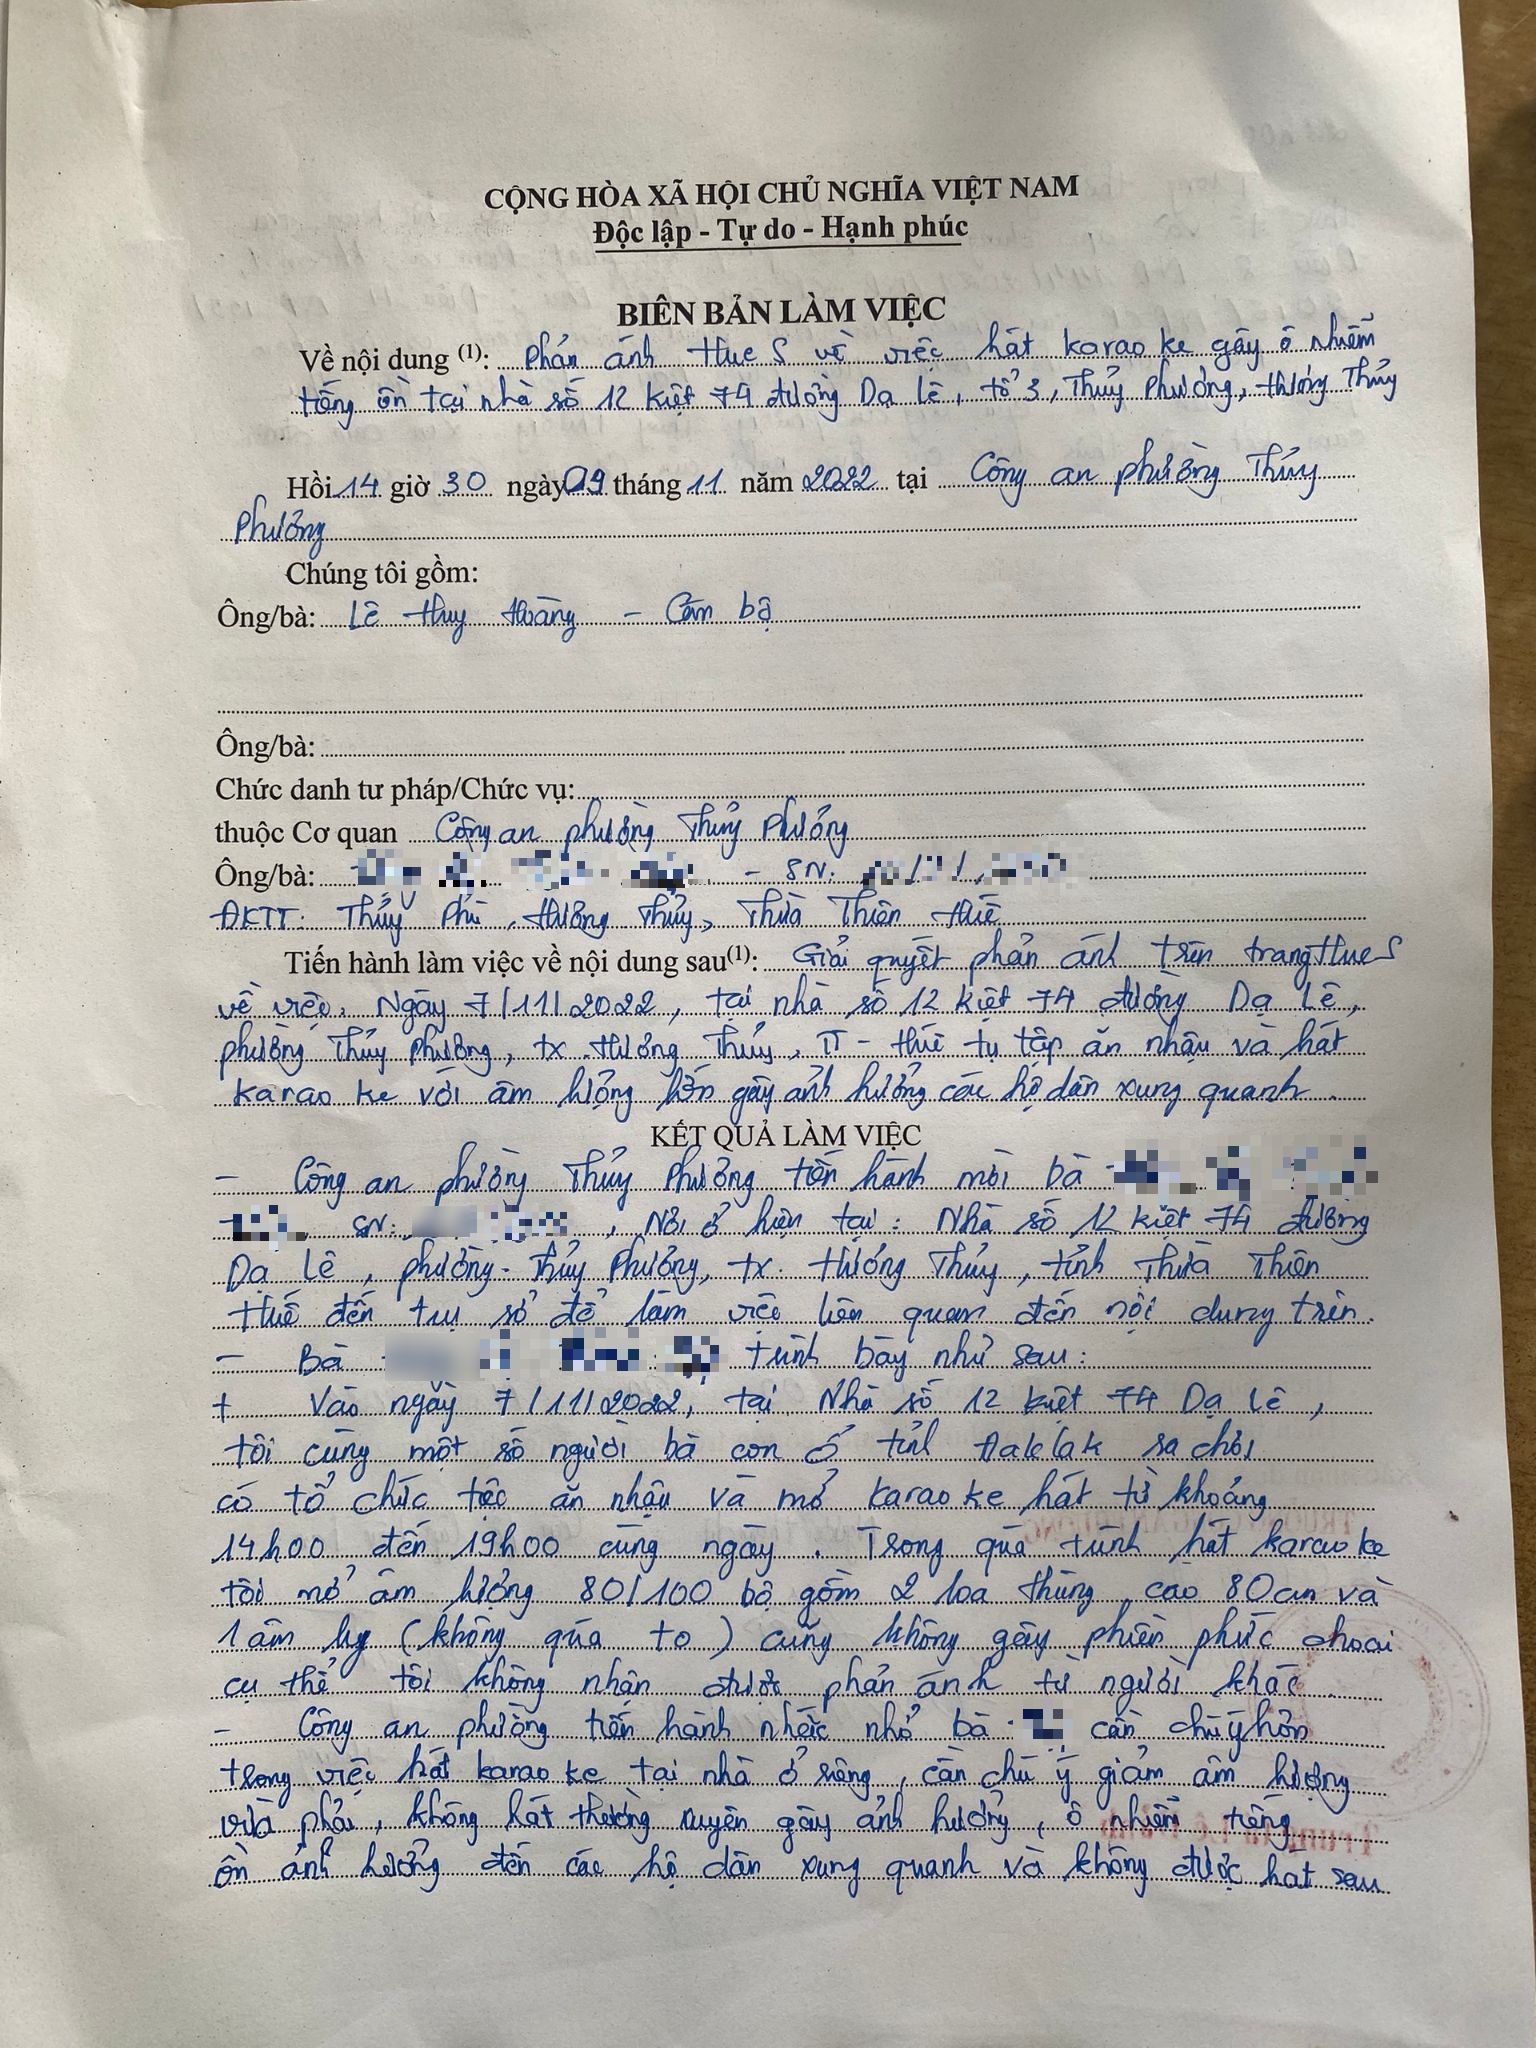 CỘNG HÒA XÃ HỘI CHỦ NGHĨA VIỆT NAM
Độc lập - Tự do - Hạnh phúc
BIÊN BẢN LÀM VIỆC
Về nội dung (1): Phản ánh Hue S về việc hát karaoke gây ô nhiễm
tiếng ồn tại nhà số 12 kiệt 74 đường Dạ Lê, tổ 3, Thủy Phương, Hương Thủy
Hồi 14 giờ 30 ngày 09 tháng 11 năm 2022 tại Công an phường Thủy
Phương
Chúng tôi gồm:
Ông/bà: Lê Huy Hoàng - Cán bộ
Ông/bà:
Chức danh tư pháp/Chức vụ:
thuộc Cơ quan Công an phường Thủy Phương
Ông/bà: - SN:
ĐKTT: Thủy Phù, Hương Thủy, Thừa Thiên Huế
Tiến hành làm việc về nội dung sau(1): Giải quyết phản ánh trên trang HueS
về việc. Ngày 7/11/2022, tại nhà số 12 kiệt 74 đường Dạ Lê,
phường Thủy Phương, tx. Hương Thủy, TT - Huế tụ tập ăn nhậu và hát
karaoke với âm lượng lớn gây ảnh hưởng các hộ dân xung quanh.
KẾT QUẢ LÀM VIỆC
- Công an phường Thủy Phương tiến hành mời bà
SN: , Nơi ở hiện tại: Nhà số 12 kiệt 74 đường
Dạ Lê, phường Thủy Phương, tx. Hương Thủy, tỉnh Thừa Thiên
Huế đến trụ sở để làm việc liên quan đến nội dung trên.
- Bà trình bày như sau:
+ Vào ngày 7/11/2022, tại Nhà số 12 kiệt 74 Dạ Lê,
tôi cùng một số người bà con ở tỉnh ra chơi
có tổ chức tiệc ăn nhậu và mở karaoke hát từ khoảng
14h00 đến 19h00 cùng ngày. Trong quá trình hát karaoke
tôi mở âm lượng 80/100 bộ gồm 2 loa thùng cao 80cm và
1 âm ly (không qúa to) cũng không gây phiền phức cho ai
cụ thể tôi không nhận được phản ánh từ người khác.
- Công an phường tiến hành nhắc nhở bà cần chú ý hơn
trong việc hát karaoke tại nhà ở riêng, cần chú ý giảm âm lượng
vừa phải, không hát thường xuyên gây ảnh hưởng, ô nhiễm tiếng
ồn ảnh hưởng đến các hộ dân xung quanh và không được hát sau